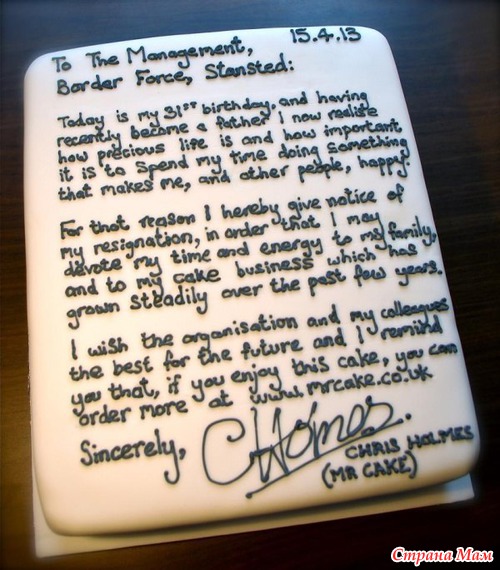 15.4.13
To The Management,
Border Force, Stansted:
Today is my 31st birthday, and having
recently become a father I now realise
how precious life is and how important
it is to spend my time doing something
that makes me, and other people, happy.
For that reason I hereby give notice of
my resignation, in order that I may
devote my time and energy to my family,
and to my cake business which has
grown steadily over the past few years.
I wish the organisation and my colleagues
the best for the future and I remind
you that, if you enjoy this cake, you can
order more at www.mrcake.co.uk
Sincerely,
CHolmes.
CHRIS HOLMES
(MR CAKE)
Страна Мам